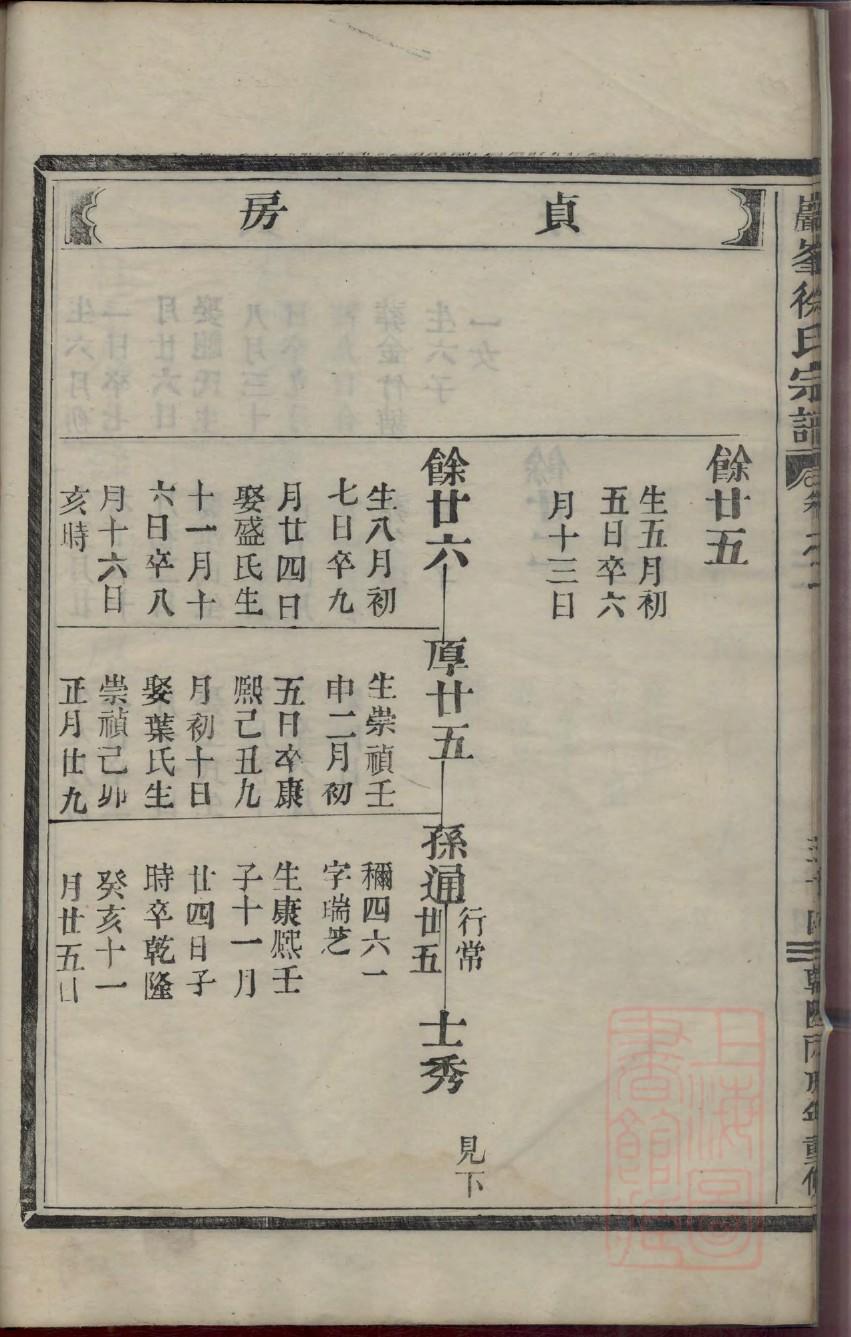 巖峯徐氏宗譜
乾隆丙戌年重修
貞房
餘廿五
生五月初
五日卒六
月十三日
餘廿六
生八月初
七日卒九
月廿四日
娶盛氏生
十一月十
六日卒八
月十六日
亥時
厚廿五
生崇禎壬
申二月初
五日卒康
熈己丑九
月初十日
娶葉氏生
崇禎己卯
正月廿九
孫通
行常
廿五
穪四六一
字瑞芝
生康熈壬
子十一月
廿四日子
時卒乾隆
癸亥十一
月廿五日
士秀
見下
上海圖
書館藏